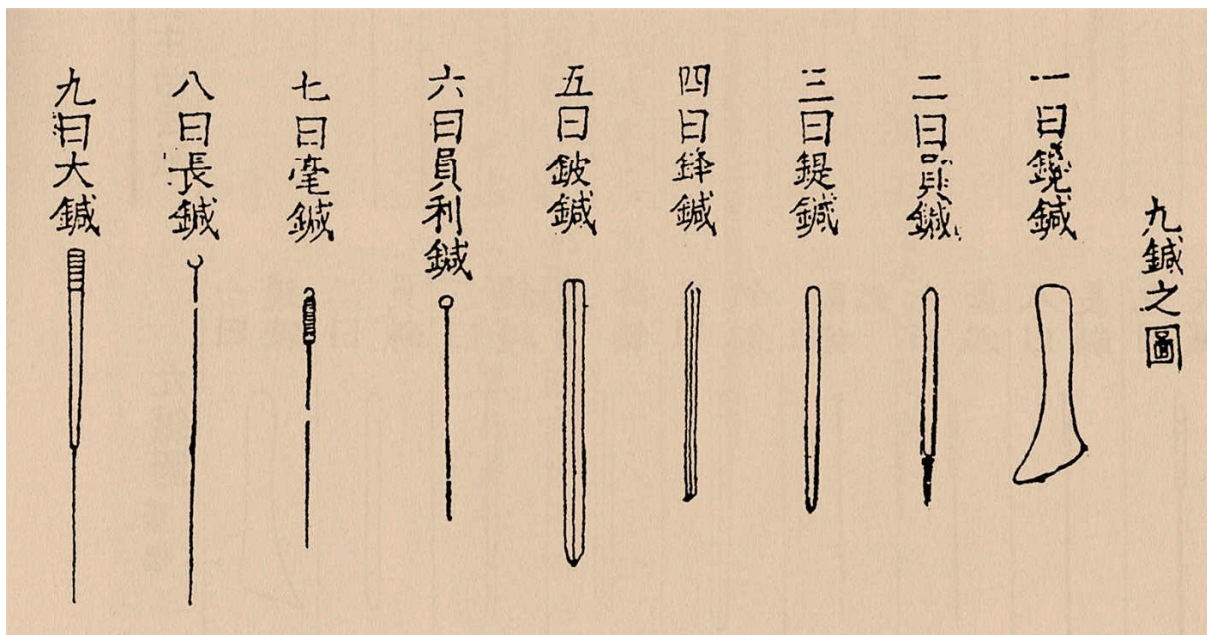 九鍼之圖
一曰鑱鍼
二曰員鍼
三曰鍉鍼
四曰鋒鍼
五曰鈹鍼
六曰員利鍼
七曰毫鍼
八曰長鍼
九曰大鍼